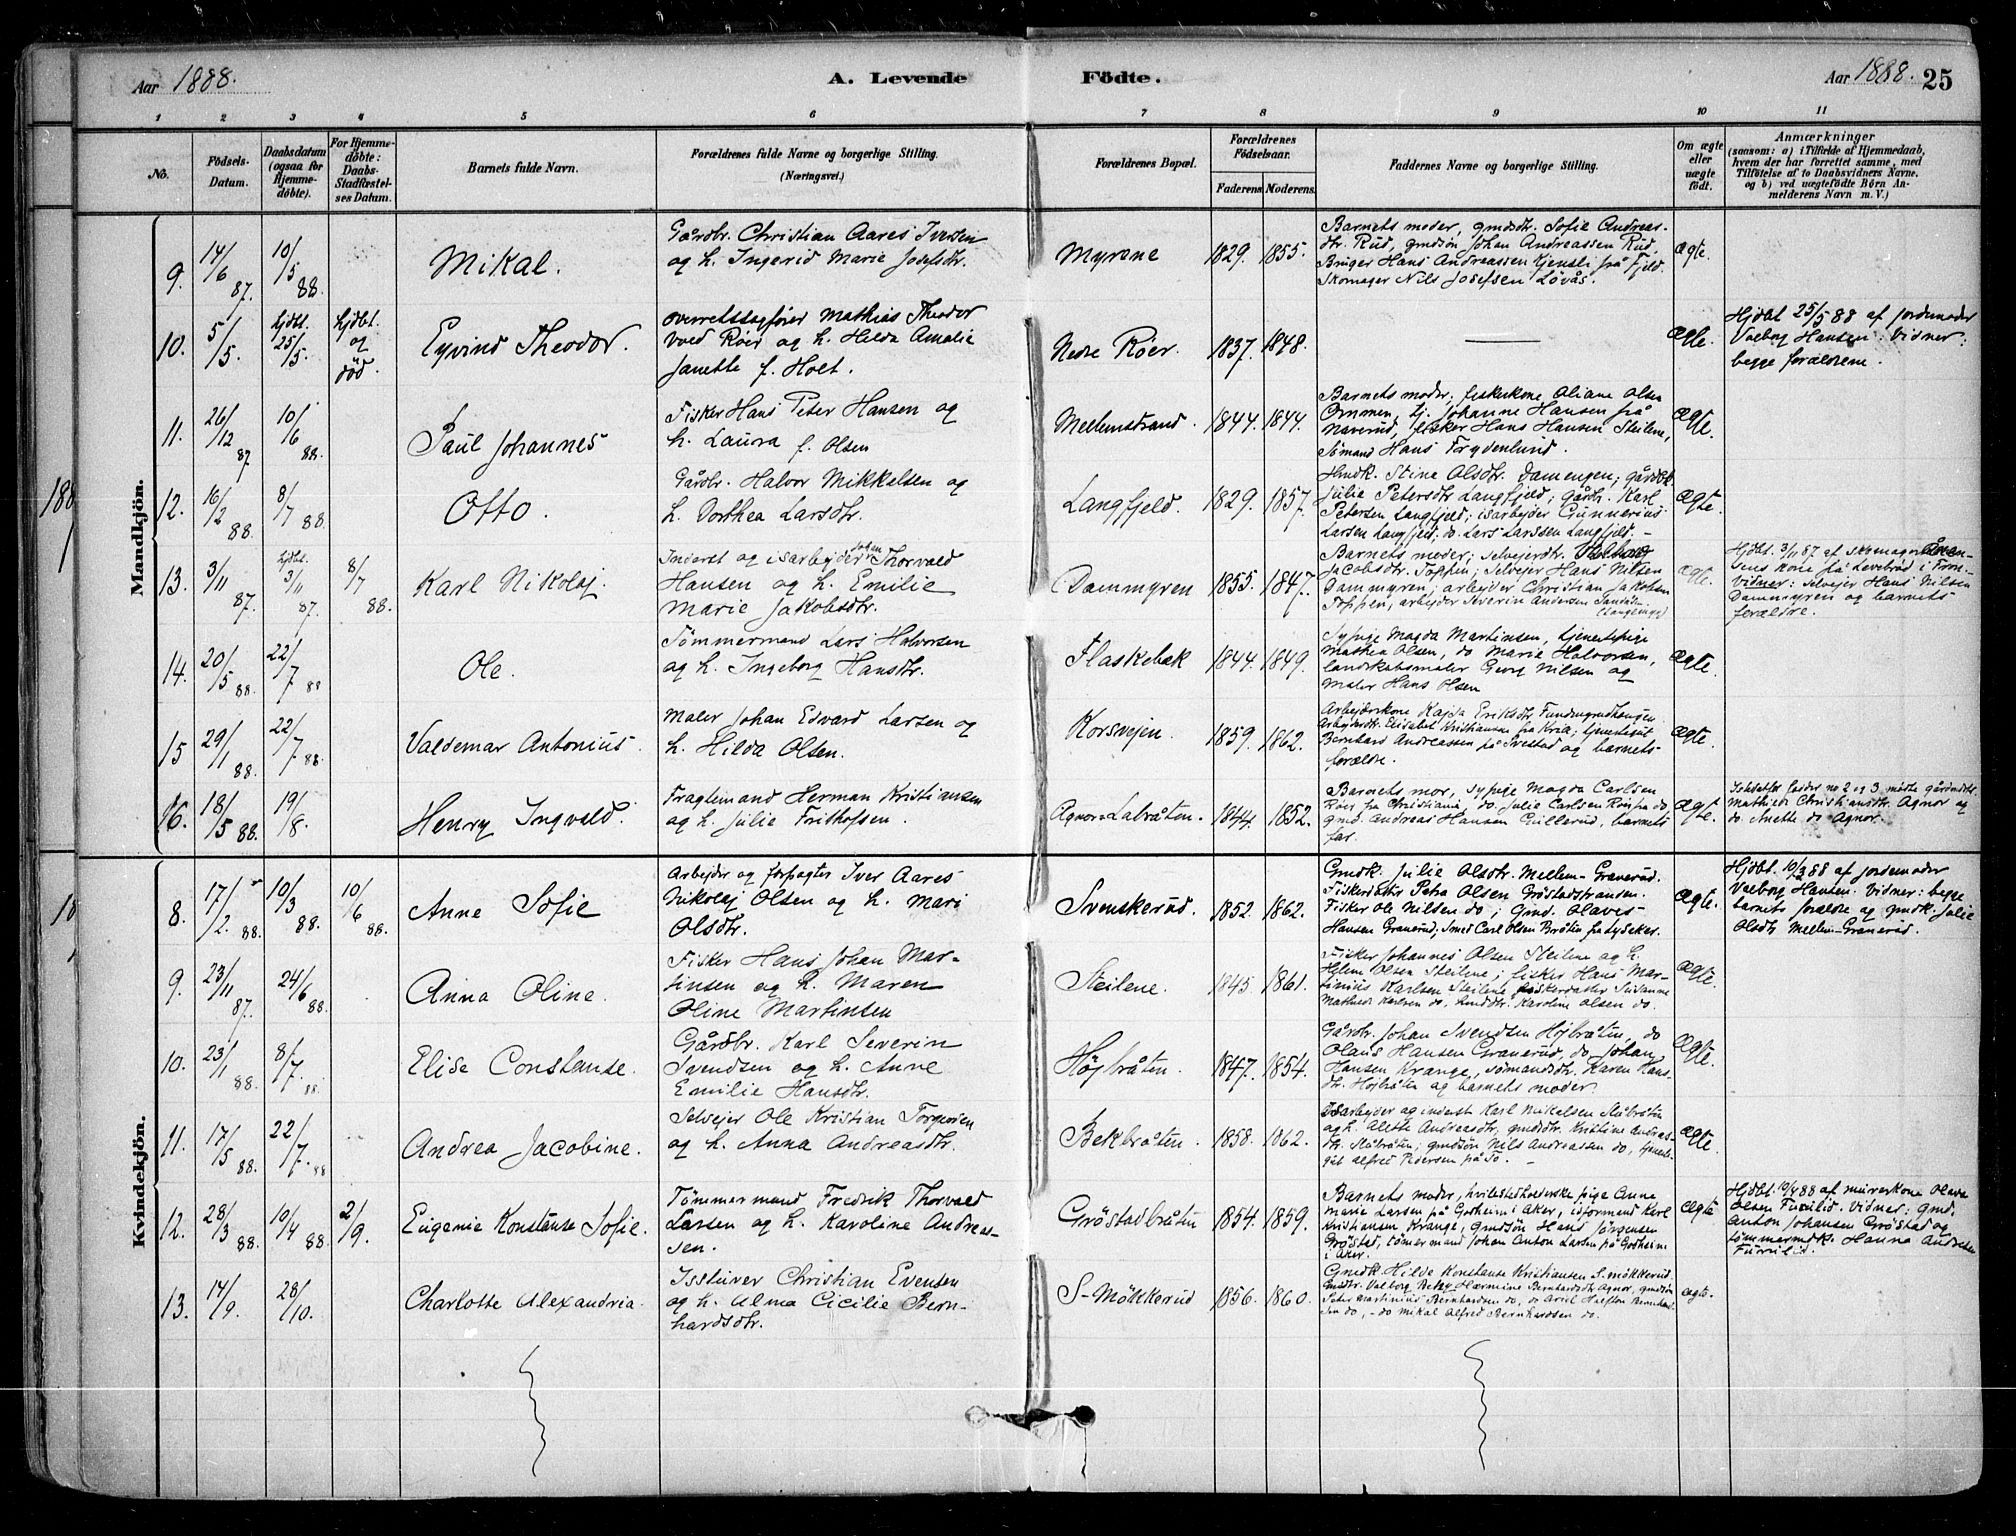 Aar 1888.
A. Levende Födte.
Aar 1888. 25
1 2 3 4 5 6 7 8 9 10 11
No.
Födsels-Datum.
Daabsdatum (ogsaa for Hjemmedöbte).
For Hjemmedöbte: Daabs-Stadfæstelses Datum.
Barnets fulde Navn.
Forældrenes fulde Navne og borgerlige Stilling.
(Næringsvei.)
Forældrenes Bopæl.
Forældrenes Födselsaar.
Faderens. Moderens.
Faddernes Navne og borgerlige Stilling.
Om ægte eller uægte födt.
Anmærkninger
(saasom: a) i Tilfælde af Hjemmedaab,
hvem der har forrettet samme, med
Tilföielse af to Daabsvidners Navne,
og b) ved uægtefödte Börn Anmelderens Navn m. V.)
Mandkjön.
9. 14/6 87. 10/5 88. Mikal.
Gårdbr. Christian Aares Iversen
og h. Ingerid Marie Josefsdtr.
Myrene 1829. 1855.
Barnets moder, gmdsdtr. Sofie Andreas-
dtr. Rud, gmdsön Johan Andreassen Rud,
Bruger Hans Andreassen Kjensli på Fjeld.
Skomager Nils Josefsen Lövås.
Ægte.
10. 5/5. hjdbt. 25/5. hjdbt. og död. Eyvind Theodor.
Overretssagförer Mathias Theodor
Voed Röer og h. Hilda Amalie
Janette f. Holt.
Nedre Röer. 1837. 1848.
Ægte.
Hjdbt 25/5 88 af jordemoder
Valborg Hansen. Vidner:
begge forældrene.
11. 26/12 87 10/6 88. Paul Johannes
Fisker Hans Peter Hansen og
h. Laura f. Olsen
Mellemstrand. 1844. 1844.
Barnets moder; fiskerkone Oliane Olsen
Ommen, tj. Johanne Hansen på
Naverud, fisker Hans Hansen Steilene,
Sömand Hans Frydenlund.
Ægte.
12. 16/2 88. 8/7 88. Otto.
Gårdbr. Halvor Mikkelsen og
h. Dorthea Larsdtr.
Langfjeld. 1829. 1857.
Hmdk. Stina Olsdtr. Damengen; gårdbk.
Julie Petersdtr Langfjeld; gårdb. Karl
Petersen Langfjeld; isarbejder Gunnerius
Larsen Langfjeld. do. Lars Larssen Langfjeld.
Ægte.
13. 3/11 87. hjdbt. 3/11 87. 8/7 88. Karl Nikolaj.
Inderst og isarbejder Johan Thorvald
Hansen og h. Emilie
Marie Jakobsdtr.
Dammyren 1855. 1847.
Barnets moder; Selvejerdtr.
Jacobsdtr. Toppen; Selvejer Hans Nilsen
Dammyren, arbejder Christian Jakobsen
Toppen, arbejder Severin Andersen
Ægte.
Hjdbt. 3/11 87 af skomager
sens kone på Levebråd i Fron.
Vidner: Selvejer Hans Nilsen
Dammyren og barnets
forældre.
14. 20/5 88. 22/7 88 Ole.
Tömmermand Lars Halvorsen
og h. Ingeborg Hansdtr.
Flaskebæk 1844. 1849.
Sypige Magda Martinsen, tjenestepige
Mathea Olsen, do Marie Halvorsen,
landskabsmaler Georg Nilsen og
Maler Hans Olsen
Ægte.
15 29/1 88. 22/7 88. Valdemar Antonius.
Maler Johan Edvard Larsen og
h. Hilda Olsen.
Korsvejen. 1859. 1862.
Arbejderskone Kajda Eriksdtr
Arbejderdtr. Elisabet Kristiansen fra Kria; tjenestegut
Bernhard Andreassen på Svestad og barnets
forældre.
Ægte.
16. 18/5 88. 19/8. Henry Ingvald.
Fragtemand Herman Kristiansen
og h. Julie Frithofsen.
Agnor-Labråten. 1844. 1852.
Barnets mor, sypige Magda Carlsen
Röer fra Christiania, do. Julie Carlsen Röer fra do
gmd. Andreas Hansen Gullerud, barnets
far.
Ægte.
Istedetfor fadder no 2 og 3 mödte gårdmdsdt.
Mathilde Christiansdtr. Agnor og
do. Anette do Agnor.
Kvindekjön.
8. 17/2 88. 10/3 88. 10/6 88. Anne Sofie
Arbejder og forpagter Iver Aares
Nikolaj Olsen og h. Mari
Olsdtr.
Svenskerud. 1852. 1862.
Gmdk. Julie Olsdtr. Mellem-Granerud.
Fiskerdatter Petra Olsen Gröstadstranden.
Fisker Ole Nilsen do; Gmd. Olaves
Hansen Granerud; Smed Carl Olsen Bråten fra Lysaker.
Ægte.
Hjdbt. 10/3 88 af jordemoder
Valborg Hansen. Vidner: begge
barnets forældre og gmdk. Julie
Olsdtr Mellem-Granerud.
9. 23/11 87. 24/6 88. Anna Oline.
Fisker Hans Johan Mar-
tinsen og h. Maren
Oline Martinsen
Steilene. 1845. 1861.
Fisker Johannes Olsen Steilene og h.
Helene Olsen Steilene; fisker Hans Mar-
tinius Karlsen Steilene, fiskerdatter Susanne
Mathilde Karlsen do, hmdsdtr. Karoline Olsen do.
Ægte.
10. 23/1 88. 8/7 88. Elise Constanse.
Gårdbr. Karl Severin
Svendsen og h. Anne
Emilie Hansdtr.
Höjbråten. 1847. 1854.
Gårdbr. Johan Svendsen Höjbråten, do
Olaus Hansen Granerud, do Johan
Hansen Krange, sömandsdtr. Karen Hans-
dtr. Höjbråten og barnets moder.
Ægte.
11. 17/5 88. 22/7. 88 Andrea Jacobine.
Selvejer Ole Kristian Torgersen
og h. Anna Andreasdtr.
Bekbråten. 1858. 1862.
Isarbejder og inderst Karl Mikelsen Stubråten
og h. Alette Andreasdtr., gmdsdtr. Kristine Andreas-
dtr. Stubråten; gmdsön Nils Andreassen do, tjeneste-
gut Alfred Pedersen på To.
Ægte.
12. 28/3 88. 10/4 88. 2/9. Eugenie Konstanse Sofie.
Tömmermand Fredrik Thorvald
Larsen og h. Karoline Andreas-
sen.
Gröstadbråten 1854. 1859.
Barnets moder, hvilestedholderske pige Anne
Marie Larsen på Godheim i Aker, isformand Karl
Kristiansen Krange, gmdsön Hans Jörgensen
Gröstad, tömermand Johan Anton Larsen på Godheim
i Aker.
Ægte
Hjdbt. 10/4 88 af murerkone Olava
Olsen Furulid. Vidner: gmd.
Anton Johansen Gröstad og
tömmermdk. Hanna Andresen
Furulid.
13. 14/9. 28/10. Charlotte Alexandria.
Isstuver Christian Evensen
og h. Alma Cicilie Bern-
hardsdtr.
S-Mökkerud 1856. 1860.
Gmdk. Hilde Konstanse Kristiansen S. Mökkerud.
Gmdsdtr. Valborg Betsy Hærmine Bernhardsdtr Agnor, gmdsön
Peter Martinius Bernhardsen do, do Ariel Bernhard-
sen do, - do Mikal Alfred Bernhardsen do.
Ægte.